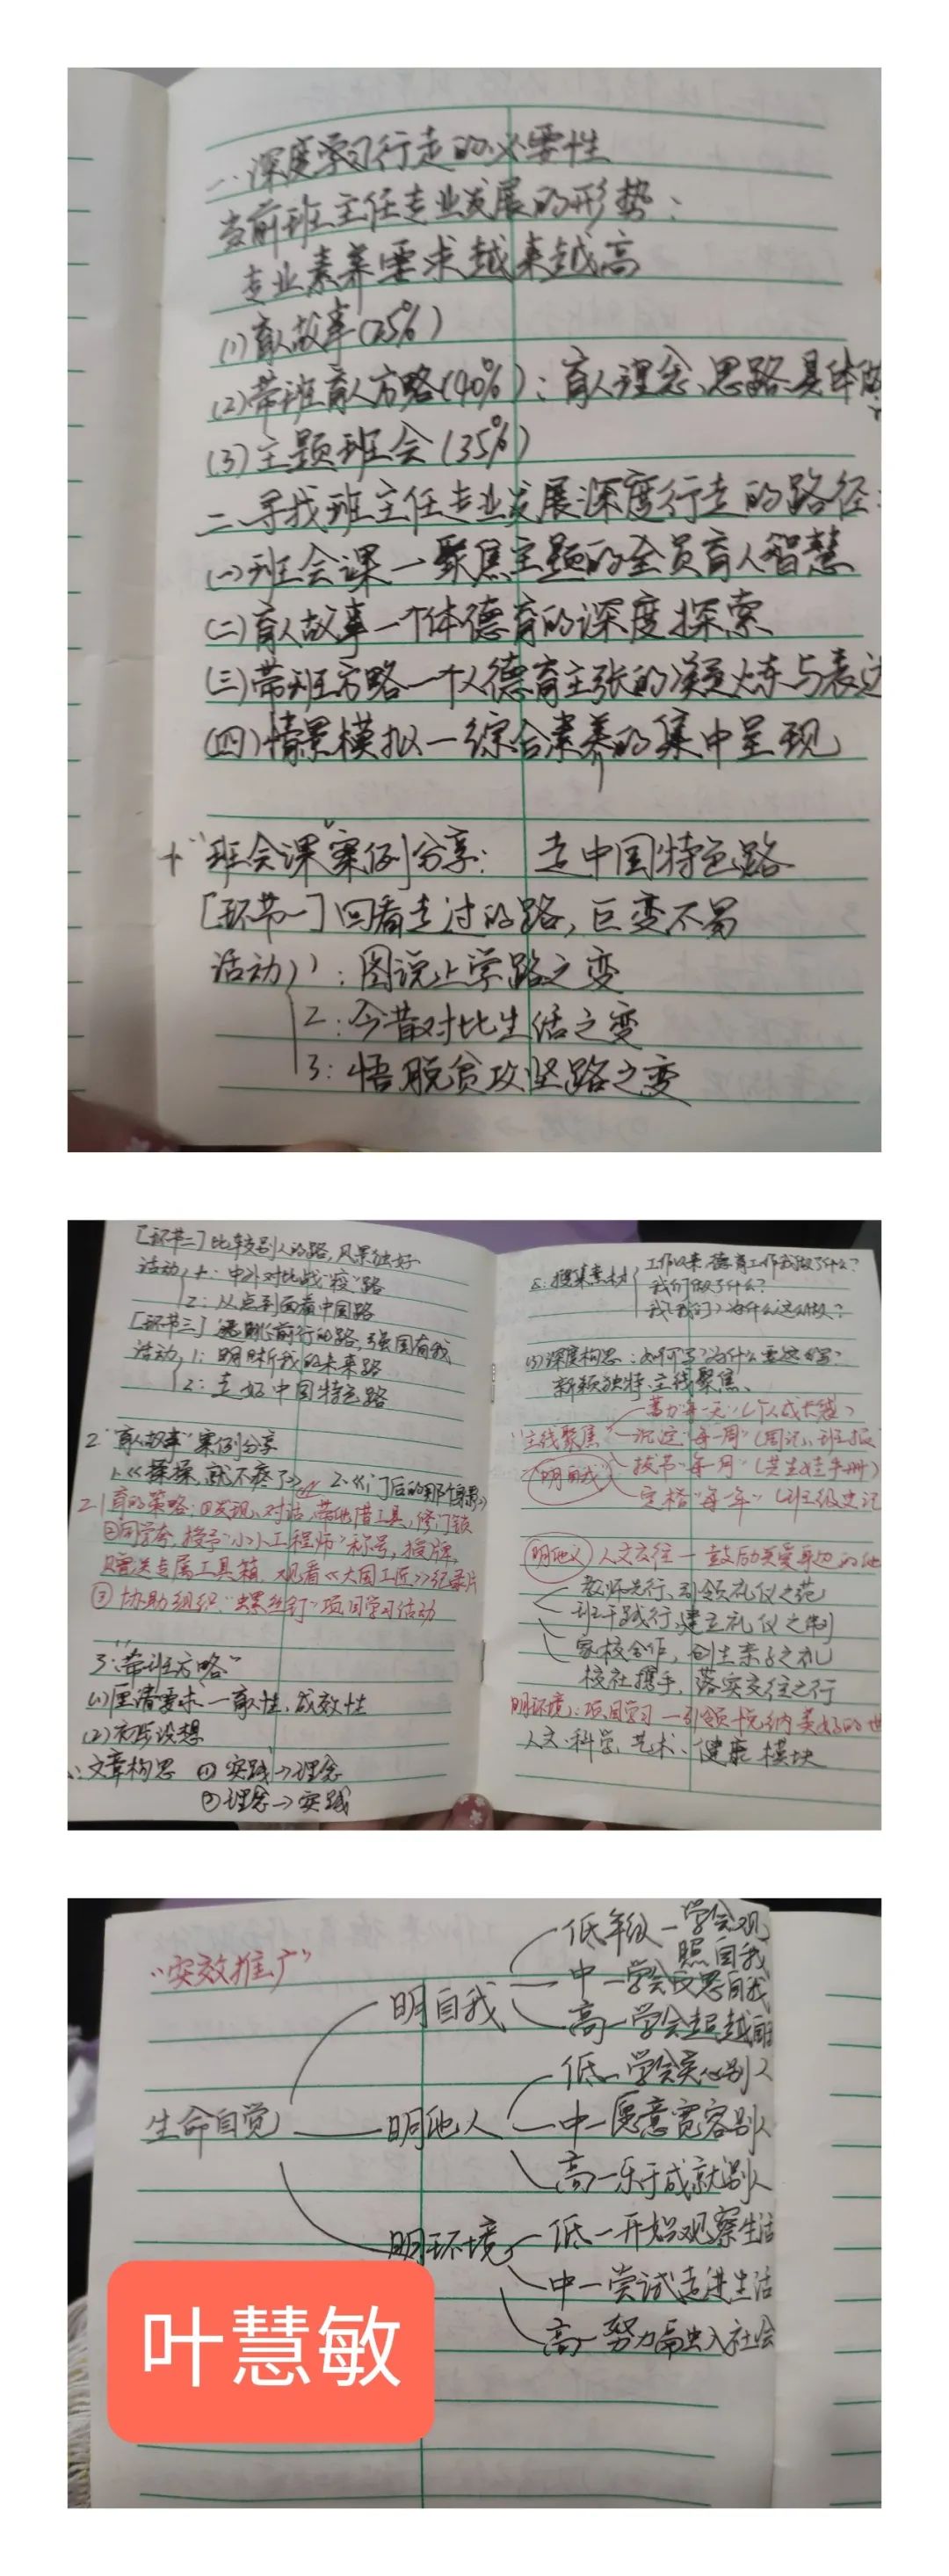 一.深度学习行走的必要性
当前班主任专业发展的形势：
专业素养要求越来越高
(1)育人故事(25%)
(2)带班育人方略(40%)：育人理念、思路、具体
(3)主题班会(35%)
二.寻找班主任专业发展深度行走的路径：
(一)班会课一聚焦主题的全员育人智慧
(二)育人故事一个体德育的深度探索
(三)带班方略一个人德育主张的凝炼与表达
(四)情景模拟一综合素养的集中呈现
"班会课"案例分享： 走中国特色路
[环节一]回看走过的路,巨变不易
活动 1：图说上学路之变
2：今昔对比生活之变
3：悟脱贫攻坚路之变
[环节二]比较别人的路,风景独好
活动 1：中外对比战"疫"路
2：从点到面看中国路
[环节三]远眺前行的路,强国有我
活动 1：明晰我的未来路
2：走好中国特色路
2."育人故事"案例分享
1.《揉揉,就不疼了》 2.《门后的那个身影》
育的策略：①发现、对话,带他借工具,修门锁
②同学夸,授予"小小工程师"称号,授牌,
奖专属工具箱,观看《大国工匠》纪录片
③协助组织"螺丝钉"项目学习活动
3."带班方略"
(1)厘清要求一育人性,成效性
(2)初步设想
文章构思 ①实践→理念
②理念→实践
搜集素材 工作以来,德育工作我做了什么?
我们做了什么?
我(我们)为什么这么做?
(3)深度构思：如何写?为什么要这么写?
新颖独特,主线聚焦、
"主线聚焦" "每一天"(个人成长袋)
明自我 沉淀"每一周"(周记、班报
拔节"每一月"(共生娃手册)
定格"每一年"(班级史记
明他人 人文交往一鼓励关爱身边的他
教师先行,引领礼仪之范
班干践行,建立礼仪之制
家校合作,创生亲子之礼
校社携手,落实交往之行
明环境：项目学习一引领悦纳美好的世
人文、科学、艺术、健康 模块
"实效推广"
生命自觉
明自我
低年级一学会观
照自我
中一学会反思自我
高一学会超越自我
明他人
低一学会关心别人
中一愿意宽容别人
高一乐于成就别人
明环境
低一开始观察生活
中一尝试走进生活
高一努力融入社会
叶慧敏